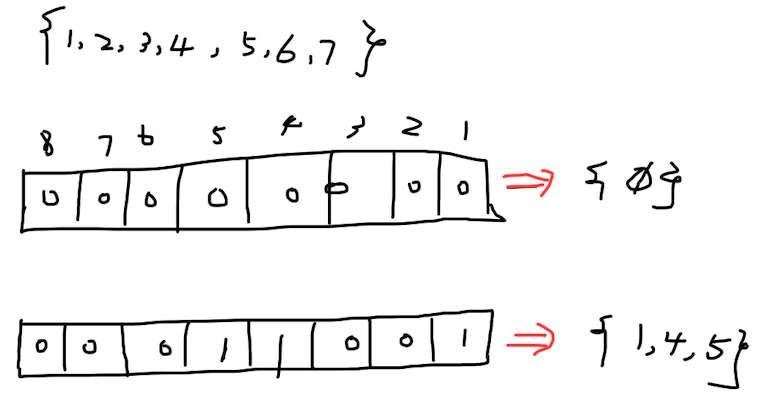 {1, 2, 3, 4, 5, 6, 7}
8 7 6 5 4 3 2 1
0 0 0 0 0 0 0 0 ⇒ {∅}
0 0 0 1 1 0 0 1 ⇒ {1, 4, 5}